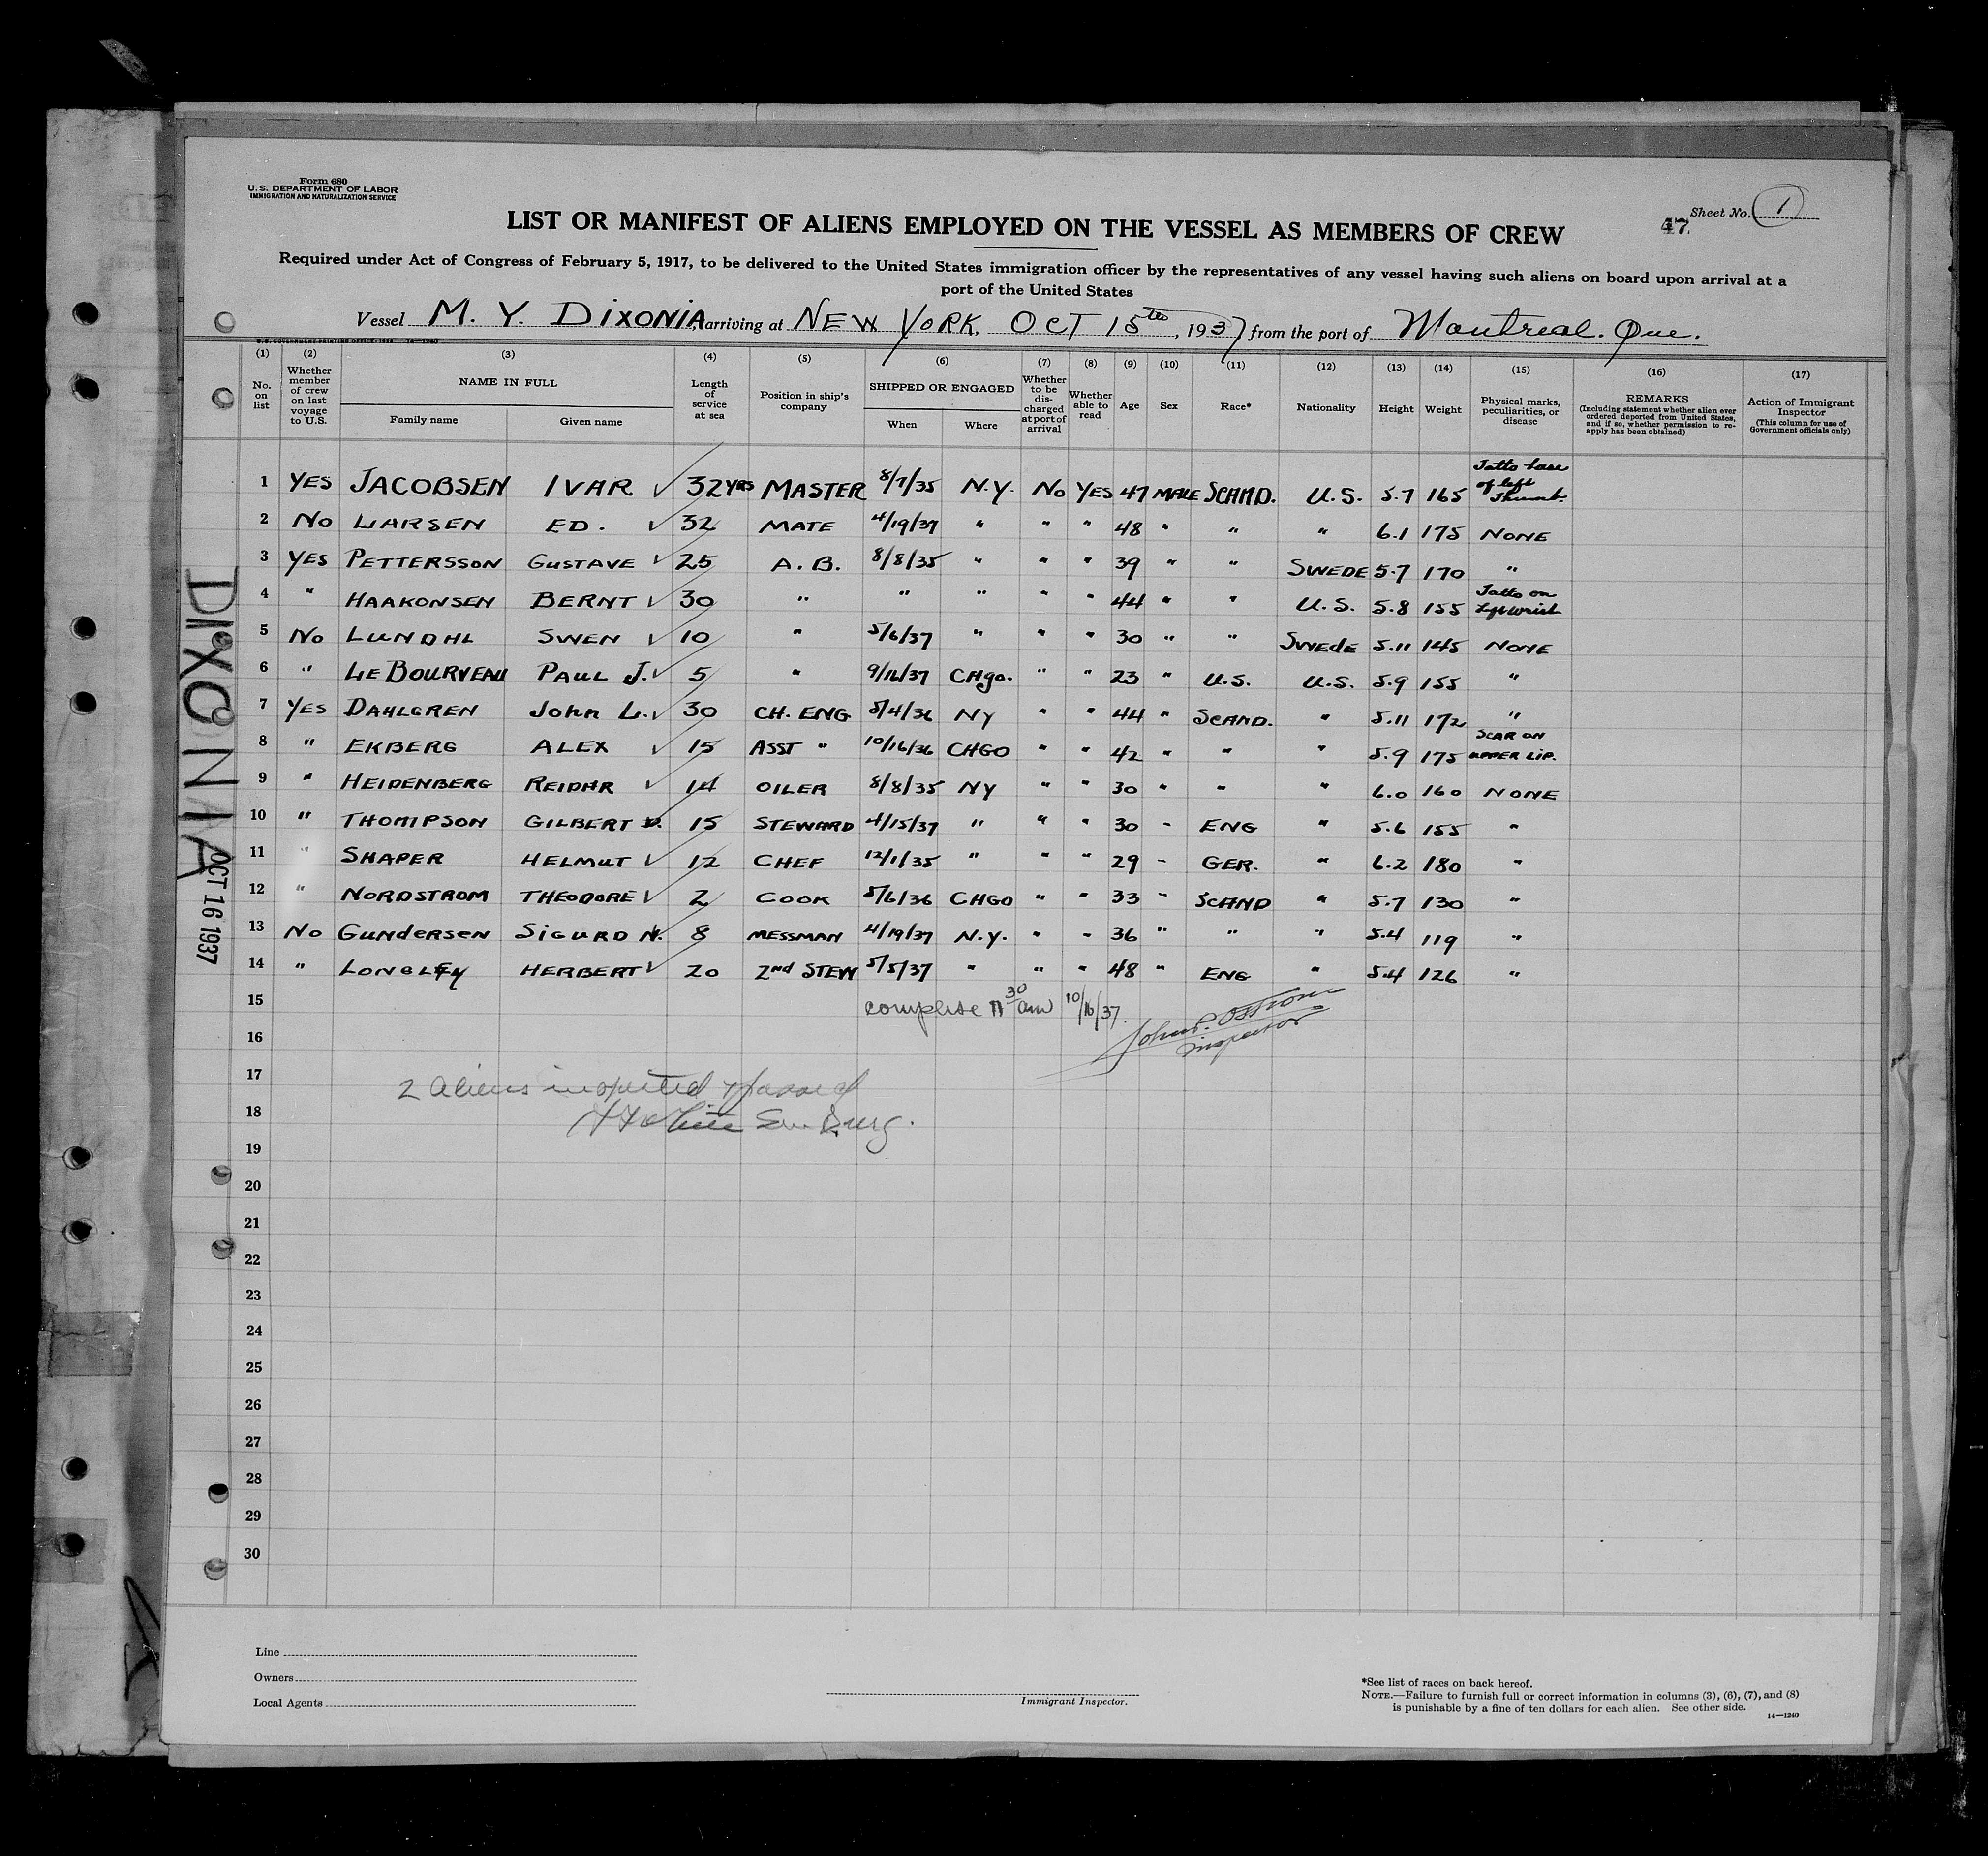 Form 680
U.S. DEPARTMENT OF LABOR
IMMIGRATION AND NATURALIZATION SERVICE
Sheet No. 1
47
LIST OR MANIFEST OF ALIENS EMPLOYED ON THE VESSEL AS MEMBERS OF CREW
Required under Act of Congress of February 5, 1917, to be delivered to the United States immigration officer by the representatives of any vessel having such aliens on board upon arrival at a
port of the United States
Vessel M. Y. DIXONIA, arriving at NEW YORK, OCT 15th, 1937, from the port of Montreal. Que.
U.S. GOVERNMENT PRINTING OFFICE: 1934 14—1240
(1) (2) (3) (4) (5) (6) (7) (8) (9) (10) (11) (12) (13) (14) (15) (16) (17)
No. on list
Whether member of crew on last voyage to U.S.
NAME IN FULL
Family name
Given name
Length of service at sea
Position in ship's company
SHIPPED OR ENGAGED
When
Where
Whether to be discharged at port of arrival
Whether able to read
Age
Sex
Race*
Nationality
Height
Weight
Physical marks, peculiarities, or disease
REMARKS
(Including statement whether alien ever ordered deported from United States, and if so, whether permission to re-apply has been obtained)
Action of Immigrant Inspector
(This column for use of Government officials only)
1 YES JACOBSEN IVAR ✓ 32 YRS MASTER 8/7/35 N.Y. No YES 47 MALE SCAND. U.S. 5.7 165 Tatto base of left Thumb.
2 No LARSEN ED. ✓ 32 MATE 4/19/37 " " " 48 " " " 6.1 175 NONE
3 YES PETTERSSON GUSTAVE ✓ 25 A.B. 8/8/35 " " " 39 " " SWEDE 5.7 170 "
4 " HAAKONSEN BERNT ✓ 30 " " " " " 44 " " U.S. 5.8 155 Tatto on Left wrist
5 No LUNDHL SWEN ✓ 10 " 5/6/37 " " " 30 " " SWEDE 5.11 145 NONE
6 " LE BOURVEAU PAUL J. ✓ 5 " 9/16/37 CHgo. " " 23 " U.S. U.S. 5.9 155 "
7 YES DAHLGREN John L. ✓ 30 CH. ENG 5/4/36 NY " " 44 " SCAND. " 5.11 172 "
8 " EKBERG ALEX ✓ 15 ASST " 10/16/36 CHGO " " 42 " " " 5.9 175 SCAR ON UPPER LIP.
9 " HEIDENBERG REIDAR ✓ 14 OILER 8/8/35 NY " " 30 " " " 6.0 160 NONE
10 " THOMPSON GILBERT D. 15 STEWARD 4/15/37 " " " 30 " ENG " 5.6 155 "
11 " SHAPER HELMUT ✓ 12 CHEF 12/1/35 " " " 29 " GER. " 6.2 180 "
12 " NORDSTROM THEODORE ✓ 2 COOK 5/6/36 CHGO " " 33 " SCAND " 5.7 130 "
13 No GUNDERSEN SIGURD N. 8 MESSMAN 4/19/37 N.Y. " " 36 " " " 5.4 119 "
14 " LONGLEY HERBERT ✓ 20 2nd STEW 5/5/37 " " " 48 " ENG " 5.4 126 "
15 complete 11 30 am 10/16/37
16 John P. Ostrom
Inspector
17 2 aliens inspected & passed
18
19
20
21
22
23
24
25
26
27
28
29
30
DIXONIA
OCT 16 1937
Line
Owners
Local Agents
Immigrant Inspector.
*See list of races on back hereof.
NOTE.—Failure to furnish full or correct information in columns (3), (6), (7), and (8)
is punishable by a fine of ten dollars for each alien. See other side.
14—1240